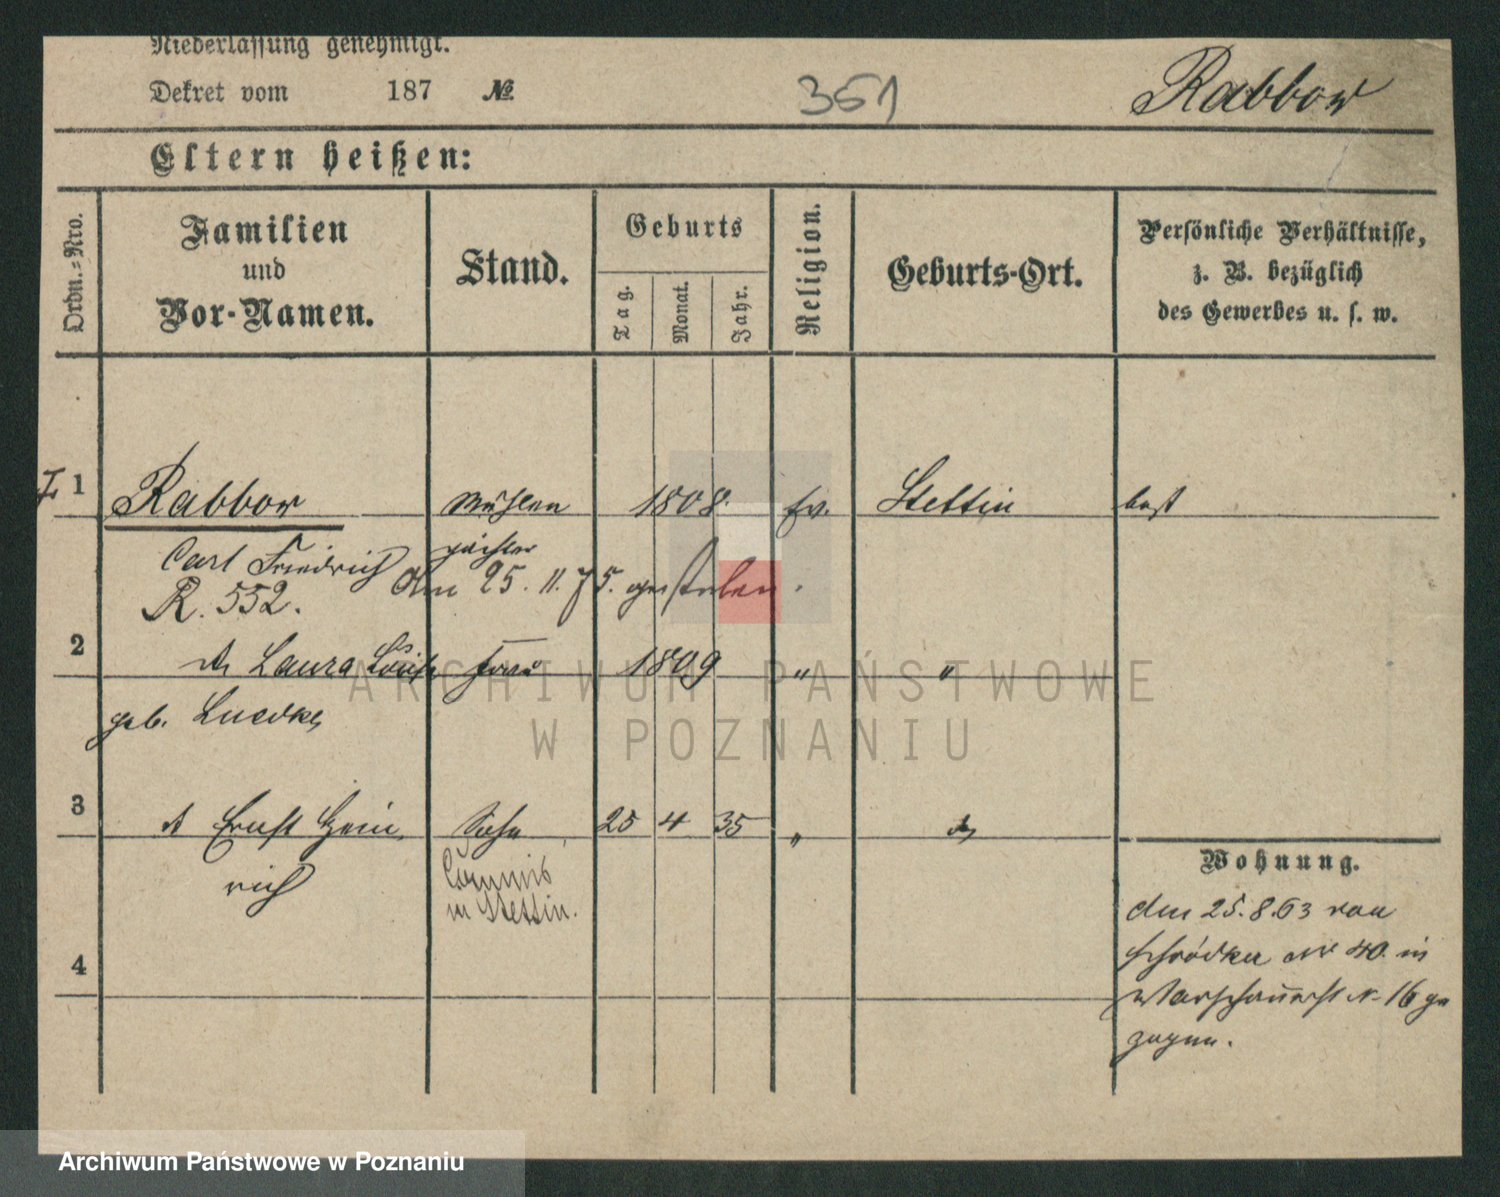 Niederlassung genehmigt.
Dekret vom 187 №. 351 Rabbow
Eltern heißen:
Ordn.-Nro.
Familien
und
Vor-Namen.
Stand.
Geburts
Tag.
Monat.
Jahr.
Religion.
Geburts-Ort.
Persönliche Verhältnisse,
z. B. bezüglich
des Gewerbes u. s. w.
1 Rabbow Mühlen 1808. ev. Stettin
Carl Friedrich pächter
am 25. 11. 75. gestorben.
R. 552.
2 Laura Louise Frau 1809 " "
geb. Luedke
3 Ernst Hein Sohn 25 4 35 "
rich
Commis
in Stettin.
4
Wohnung.
den 25.8.63 von
Schrodka No 40. in
Warschauerst N. 16 ge
zogen.
ARCHIWUM PAŃSTWOWE
W POZNANIU
Archiwum Państwowe w Poznaniu